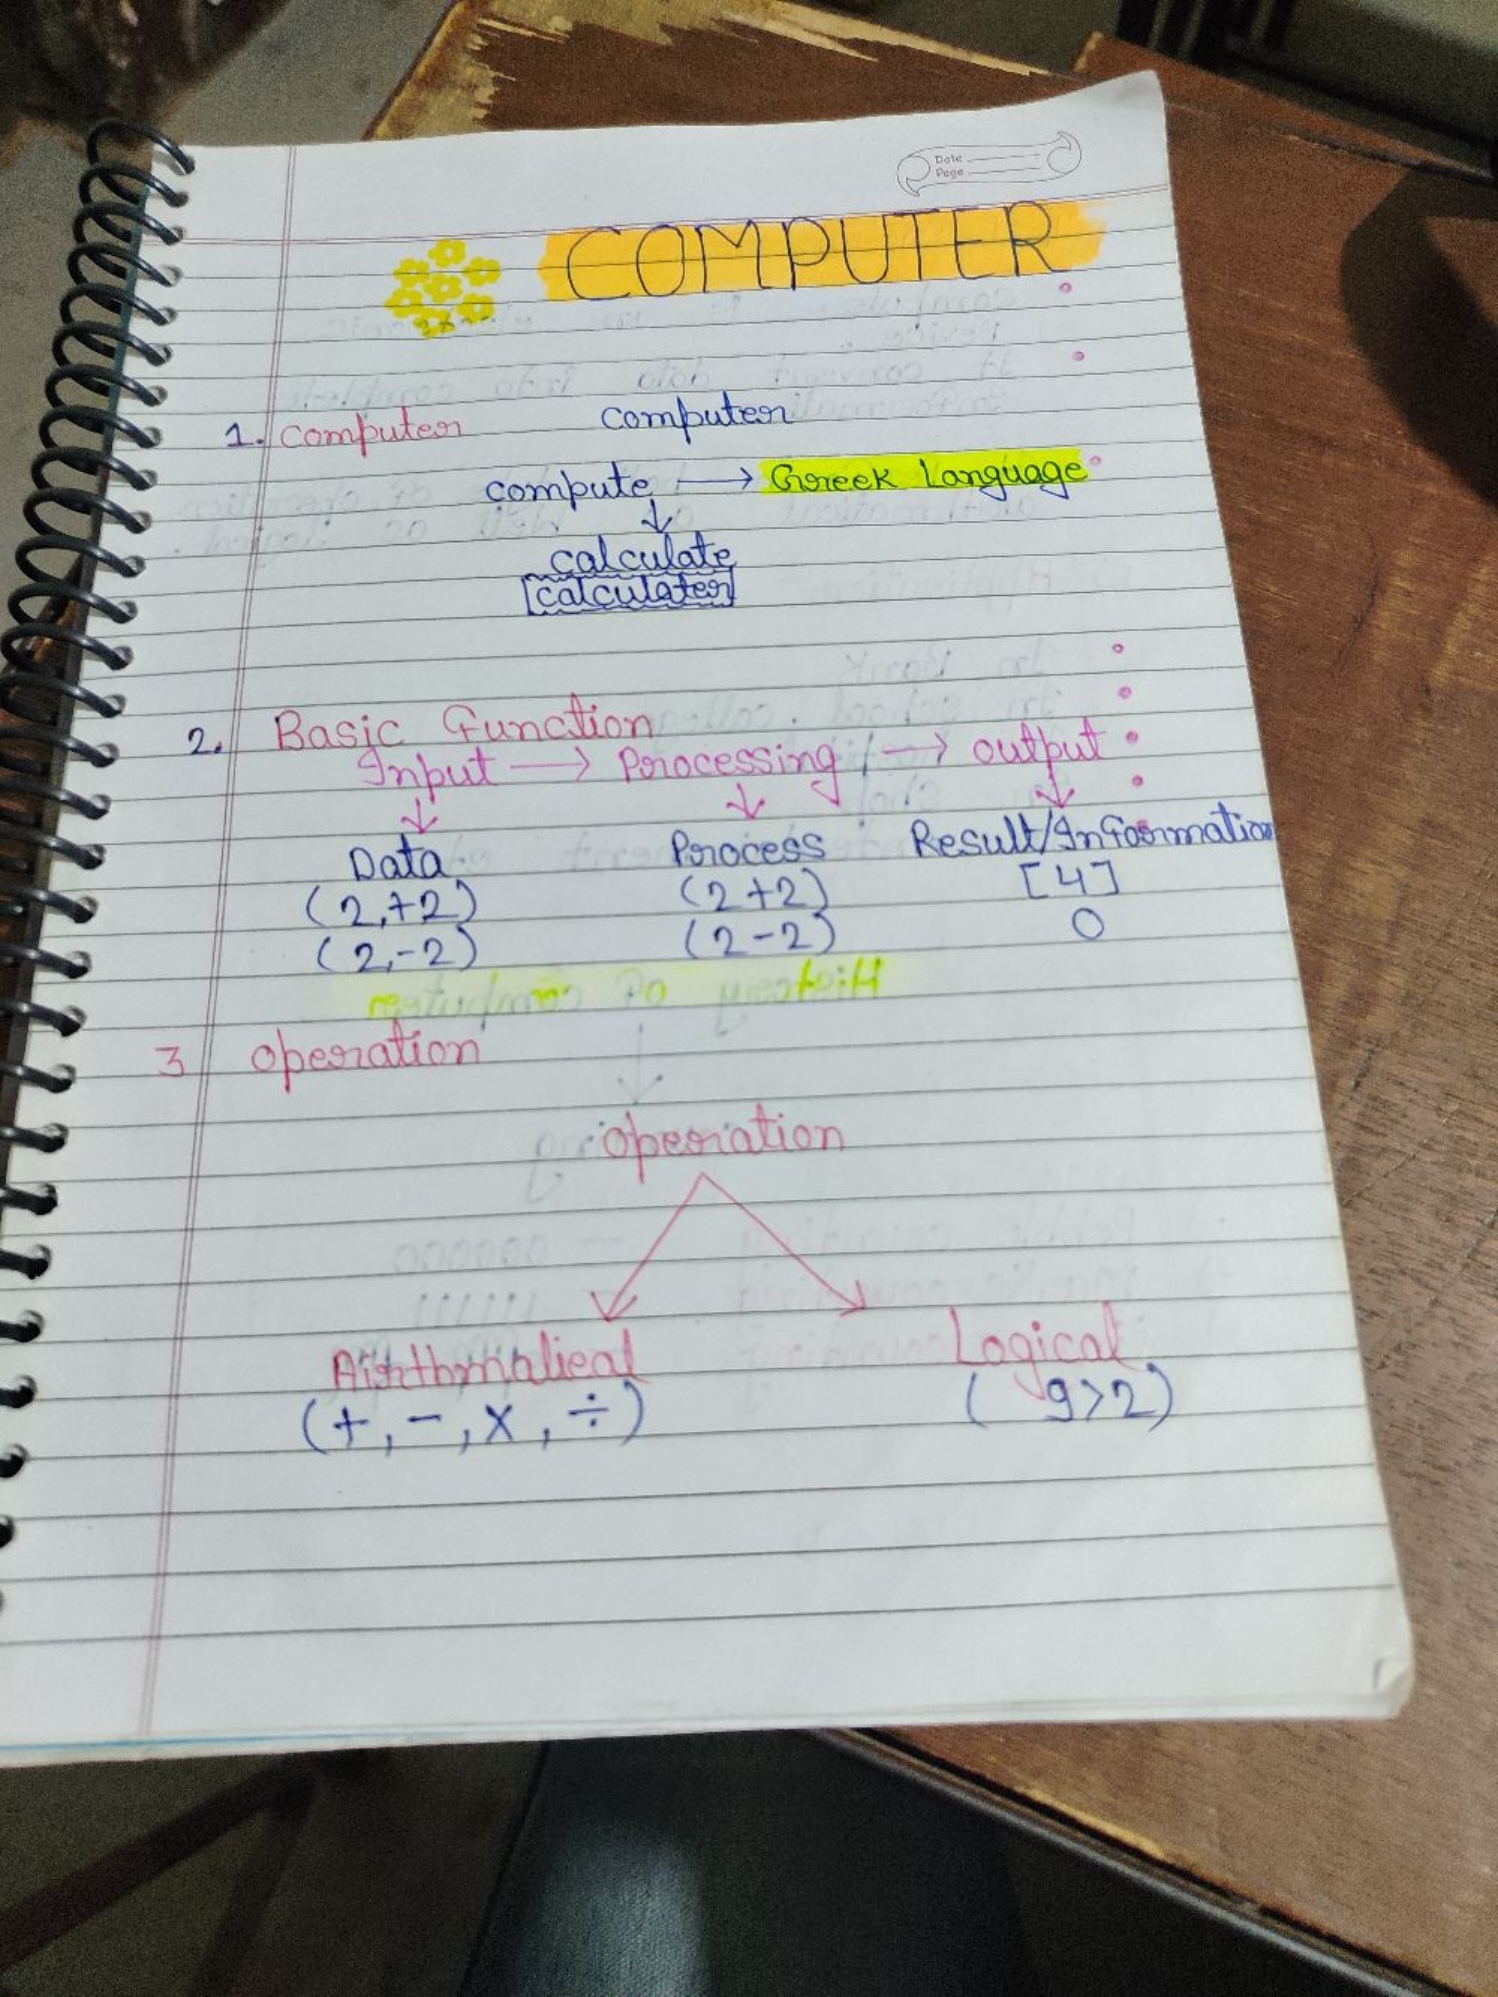 Date
Page
COMPUTER
1. Computer Computer
compute → Greek Language
↓
calculate
[calculater]
2. Basic Function
Input → Processing → output
↓ ↓ ↓
Data Process Result/Information
(2,+2) (2+2) [4]
(2,-2) (2-2) 0
History of computer
3 operation
operation
Airthmatical Logical
(+, -, x, ÷) ( 9>2)